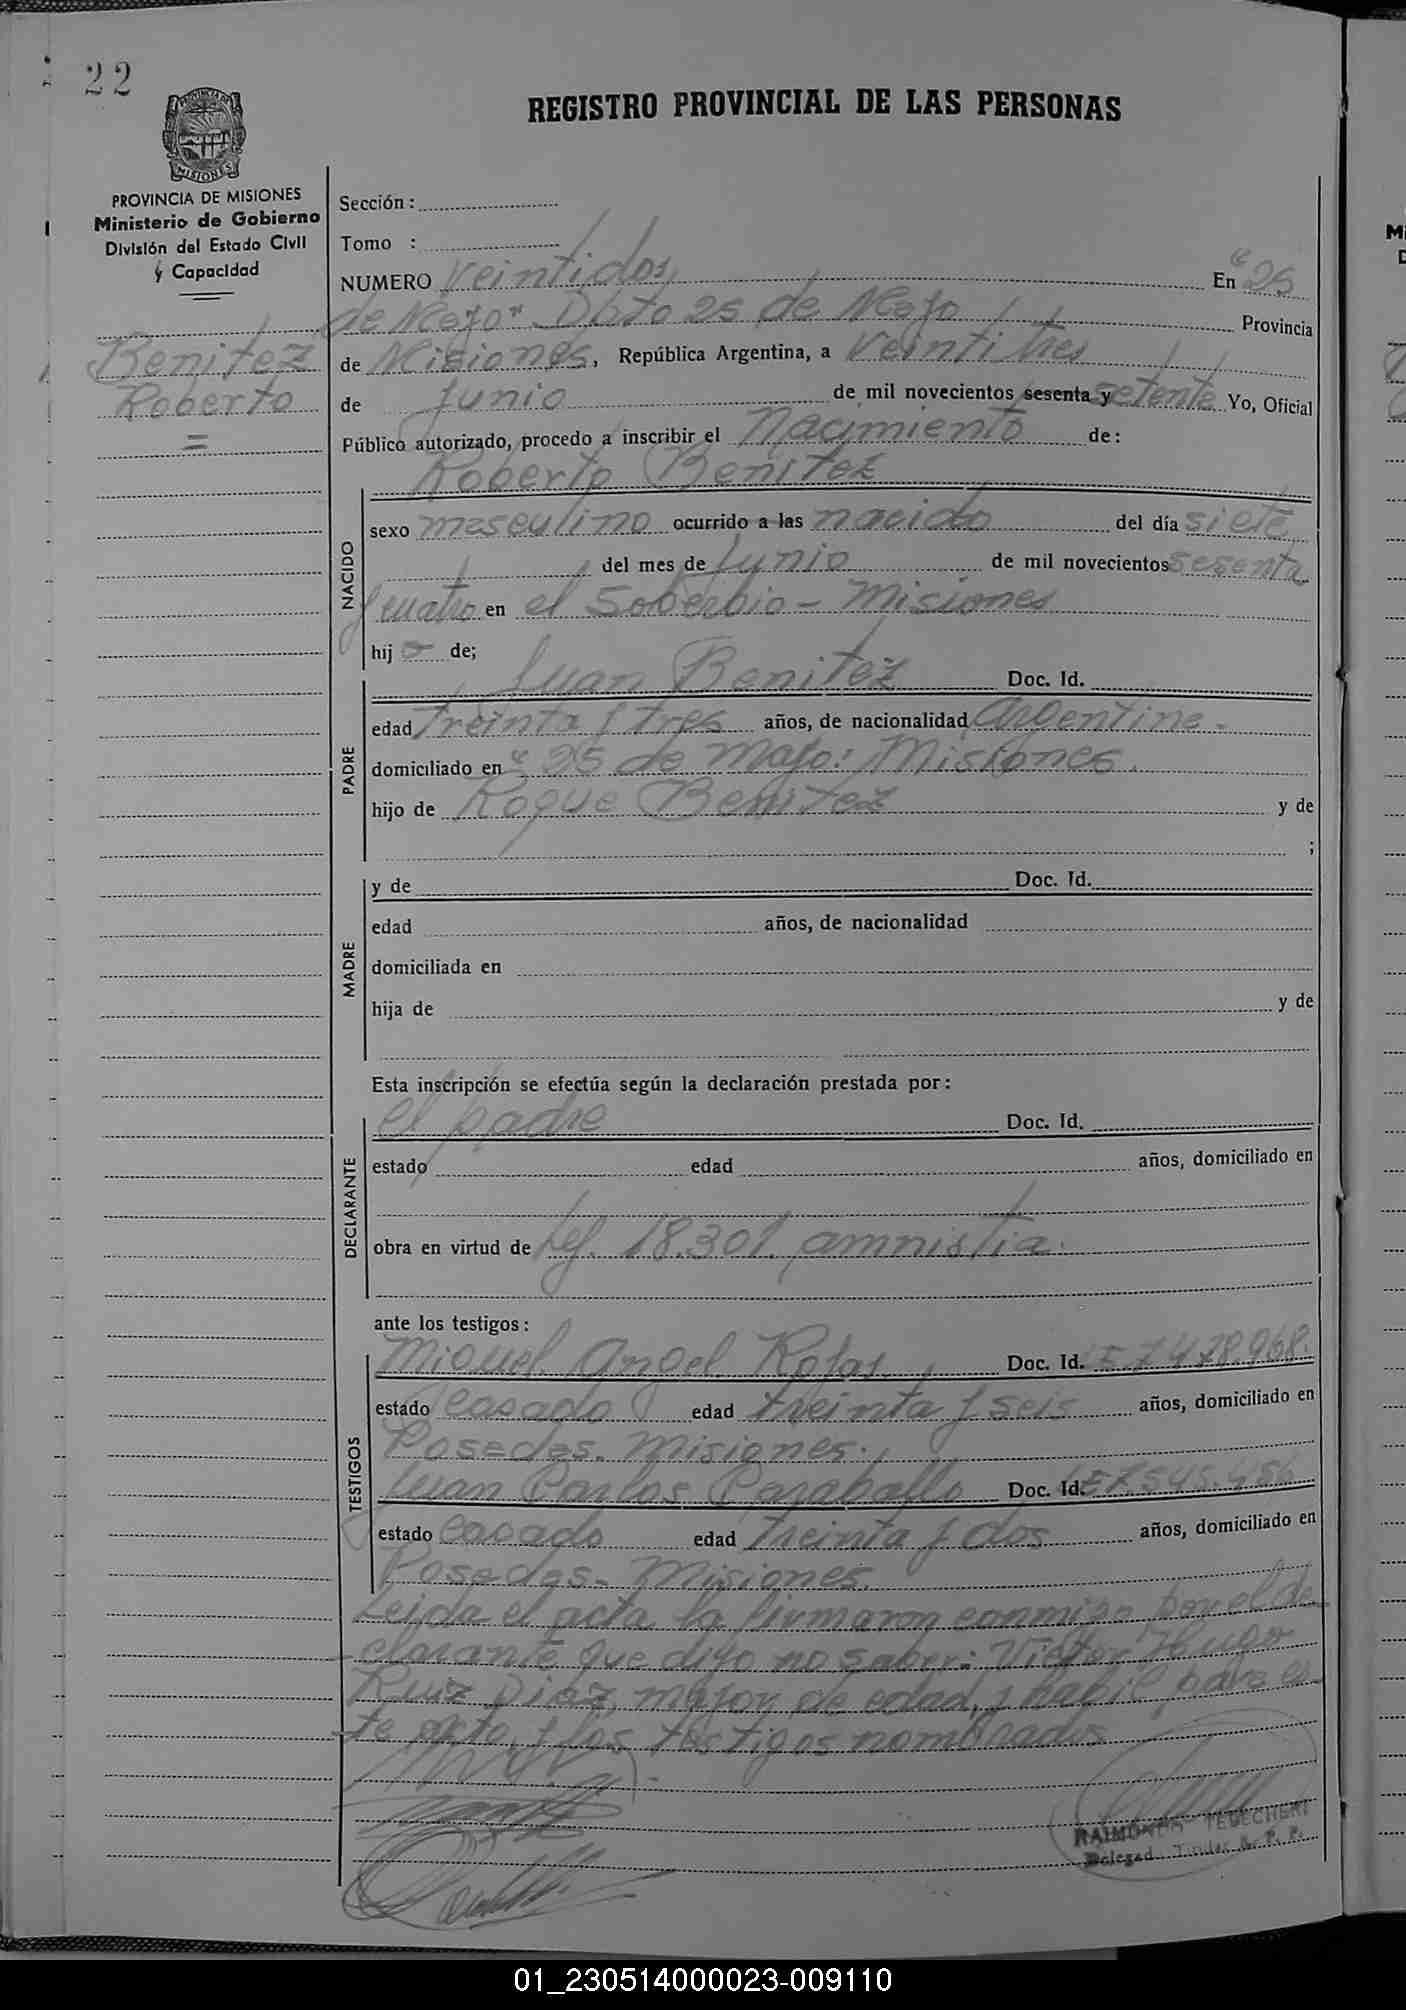 22
PROVINCIA DE
MISIONES
REGISTRO PROVINCIAL DE LAS PERSONAS
PROVINCIA DE MISIONES
Ministerio de Gobierno
División del Estado Civil
y Capacidad
Benitez
Roberto
=
Sección:
Tomo :
NUMERO Veintidos En "25
de Mayo" Dpto 25 de Mayo Provincia
de Misiones, República Argentina, a Veintitres
de Junio de mil novecientos sesenta y setenta Yo, Oficial
Público autorizado, procedo a inscribir el Nacimiento de:
Roberto Benitez
NACIDO
sexo masculino ocurrido a las nacido del día siete
del mes de Junio de mil novecientos sesenta
y cuatro en el Soberbio - Misiones
hijo de;
PADRE
Juan Benitez Doc. Id.
edad treinta y tres años, de nacionalidad Argentina-
domiciliado en "25 de Mayo: Misiones.
hijo de Roque Benitez y de
;
MADRE
y de Doc. Id.
edad años, de nacionalidad
domiciliada en
hija de y de
Esta inscripción se efectúa según la declaración prestada por:
DECLARANTE
el padre Doc. Id.
estado edad años, domiciliado en
obra en virtud de Ley. 18.301. amnistia.
ante los testigos:
TESTIGOS
Miguel Angel Rojas. Doc. Id. 7.478.968.
estado casado edad treinta y seis años, domiciliado en
Posadas. Misiones.
Juan Carlos Doc. Id. 7.545.456
estado casado edad treinta y dos años, domiciliado en
Posadas- Misiones.
Leida el acta la firmaron conmigo por el de
clarante que dijo no saber: Victor Hugo
Ruiz Diaz, mayor de edad, y habil para es
te acto y los testigos nombrados
RAIMUNDO TEDECHERI
Delegado Titular R. P. P.
01_230514000023-009110